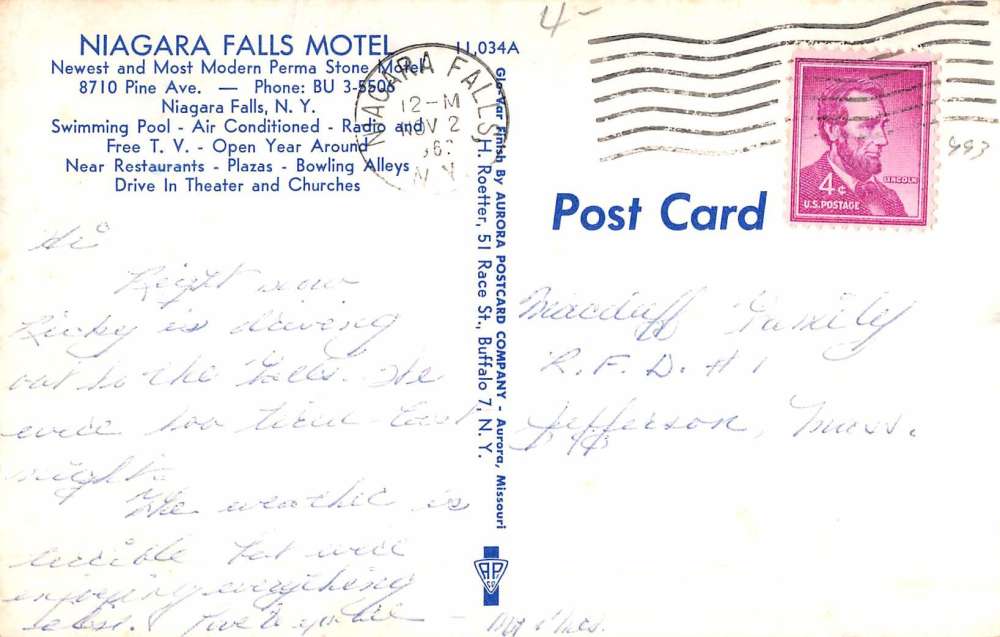 NIAGARA FALLS MOTEL
11,034A
Newest and Most Modern Perma Stone Motel
8710 Pine Ave. — Phone: BU 3-5506
Niagara Falls, N. Y.
Swimming Pool - Air Conditioned - Radio and
Free T. V. - Open Year Around
Near Restaurants - Plazas - Bowling Alleys
Drive In Theater and Churches
NIAGARA FALLS
12-M
NOV 2
N.Y.
Hi
Right now
Ricky is driving
out to the Falls. He
was too tired last
night.
The weather is
terrible but
enjoying everything
else. Love to you all
Glo-Var Finish By AURORA POSTCARD COMPANY - Aurora, Missouri
H. Roetter, 51 Race St., Buffalo 7, N. Y.
APCO
4-
4¢
LINCOLN
U.S. POSTAGE
993
Post Card
Macduff Family
R.F.D. #1
Jefferson, Mass.